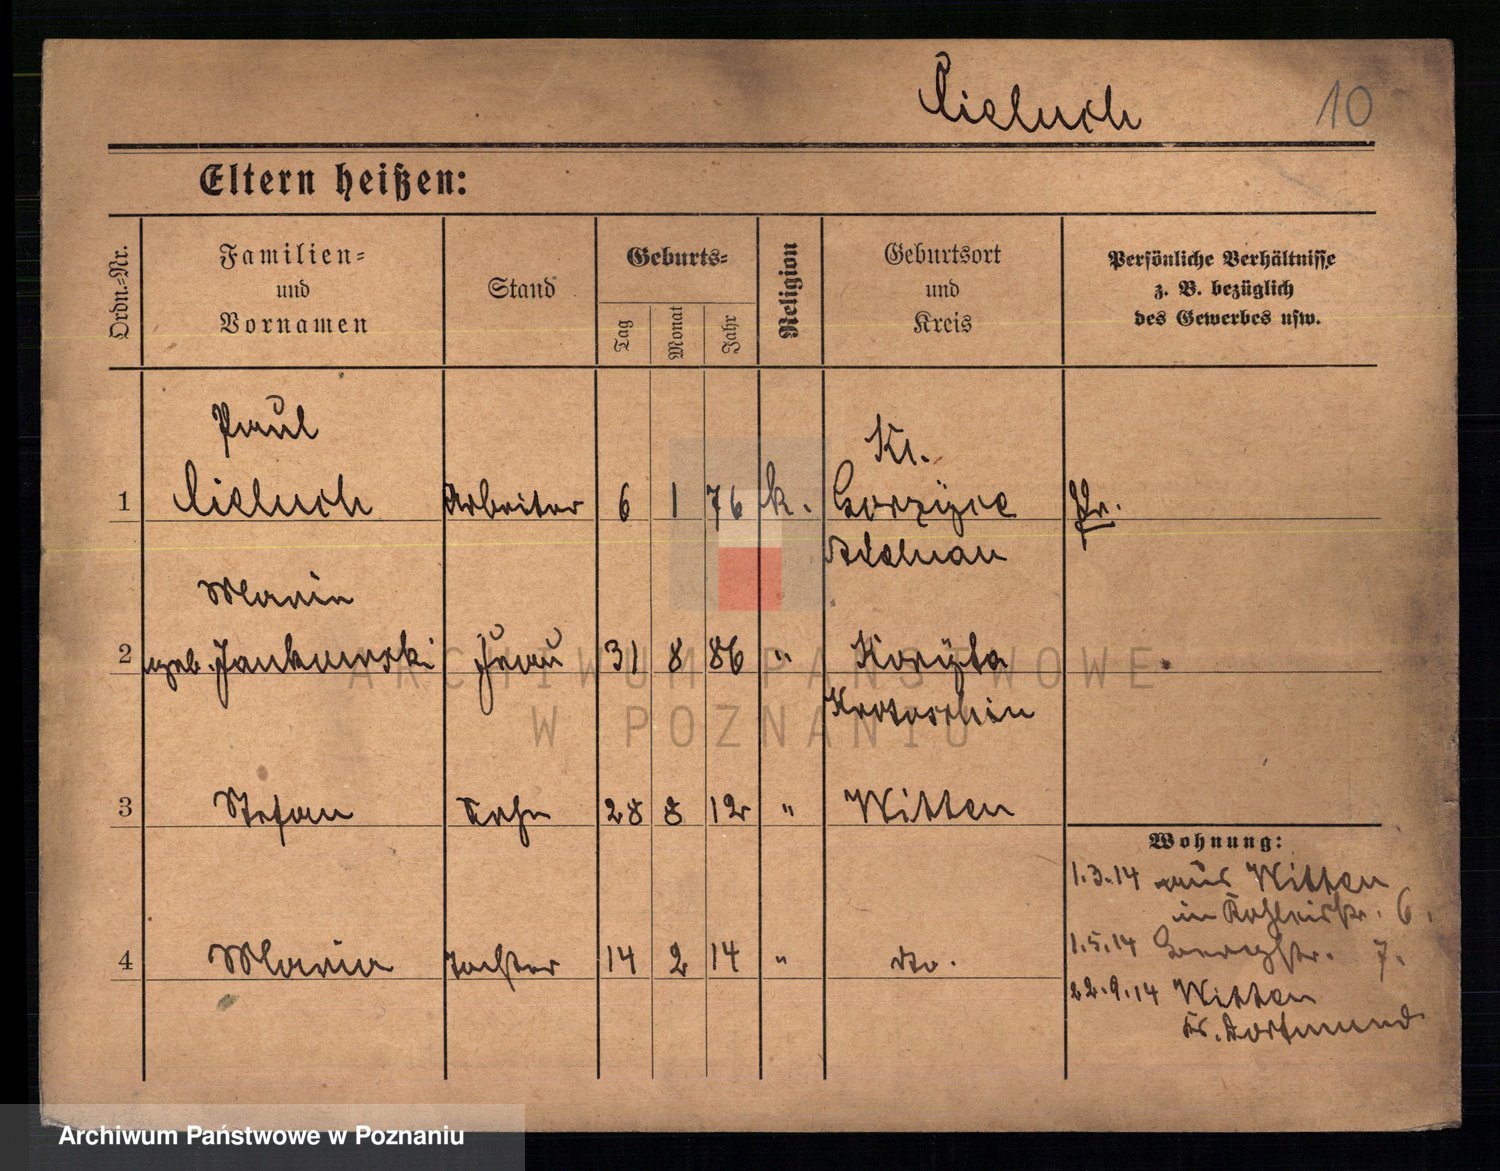 Cieluch 10
Eltern heißen:
Ordn.-Nr.
Familien-
und
Vornamen
Stand
Geburts-
Tag
Monat
Jahr
Religion
Geburtsort
und
Kreis
Persönliche Verhältnisse
z. B. bezüglich
des Gewerbes usw.
Paul Kl.
1 Cieluch Arbeiter 6 1 76 k. Gorzyce Pr.
Adelnau
Maria
2 geb. Jankowski Frau 31 8 86 " Koryta
Krotoschin
3 Stefan Sohn 28 8 12 " Witten
4 Maria Tochter 14 2 14 " do.
Wohnung:
1.3.14 aus Witten
in 6.
1.5.14 Bergstr. 7.
22.9.14 Witten
Kr. Dortmund
ARCHIWUM PAŃSTWOWE
W POZNANIU
Archiwum Państwowe w Poznaniu